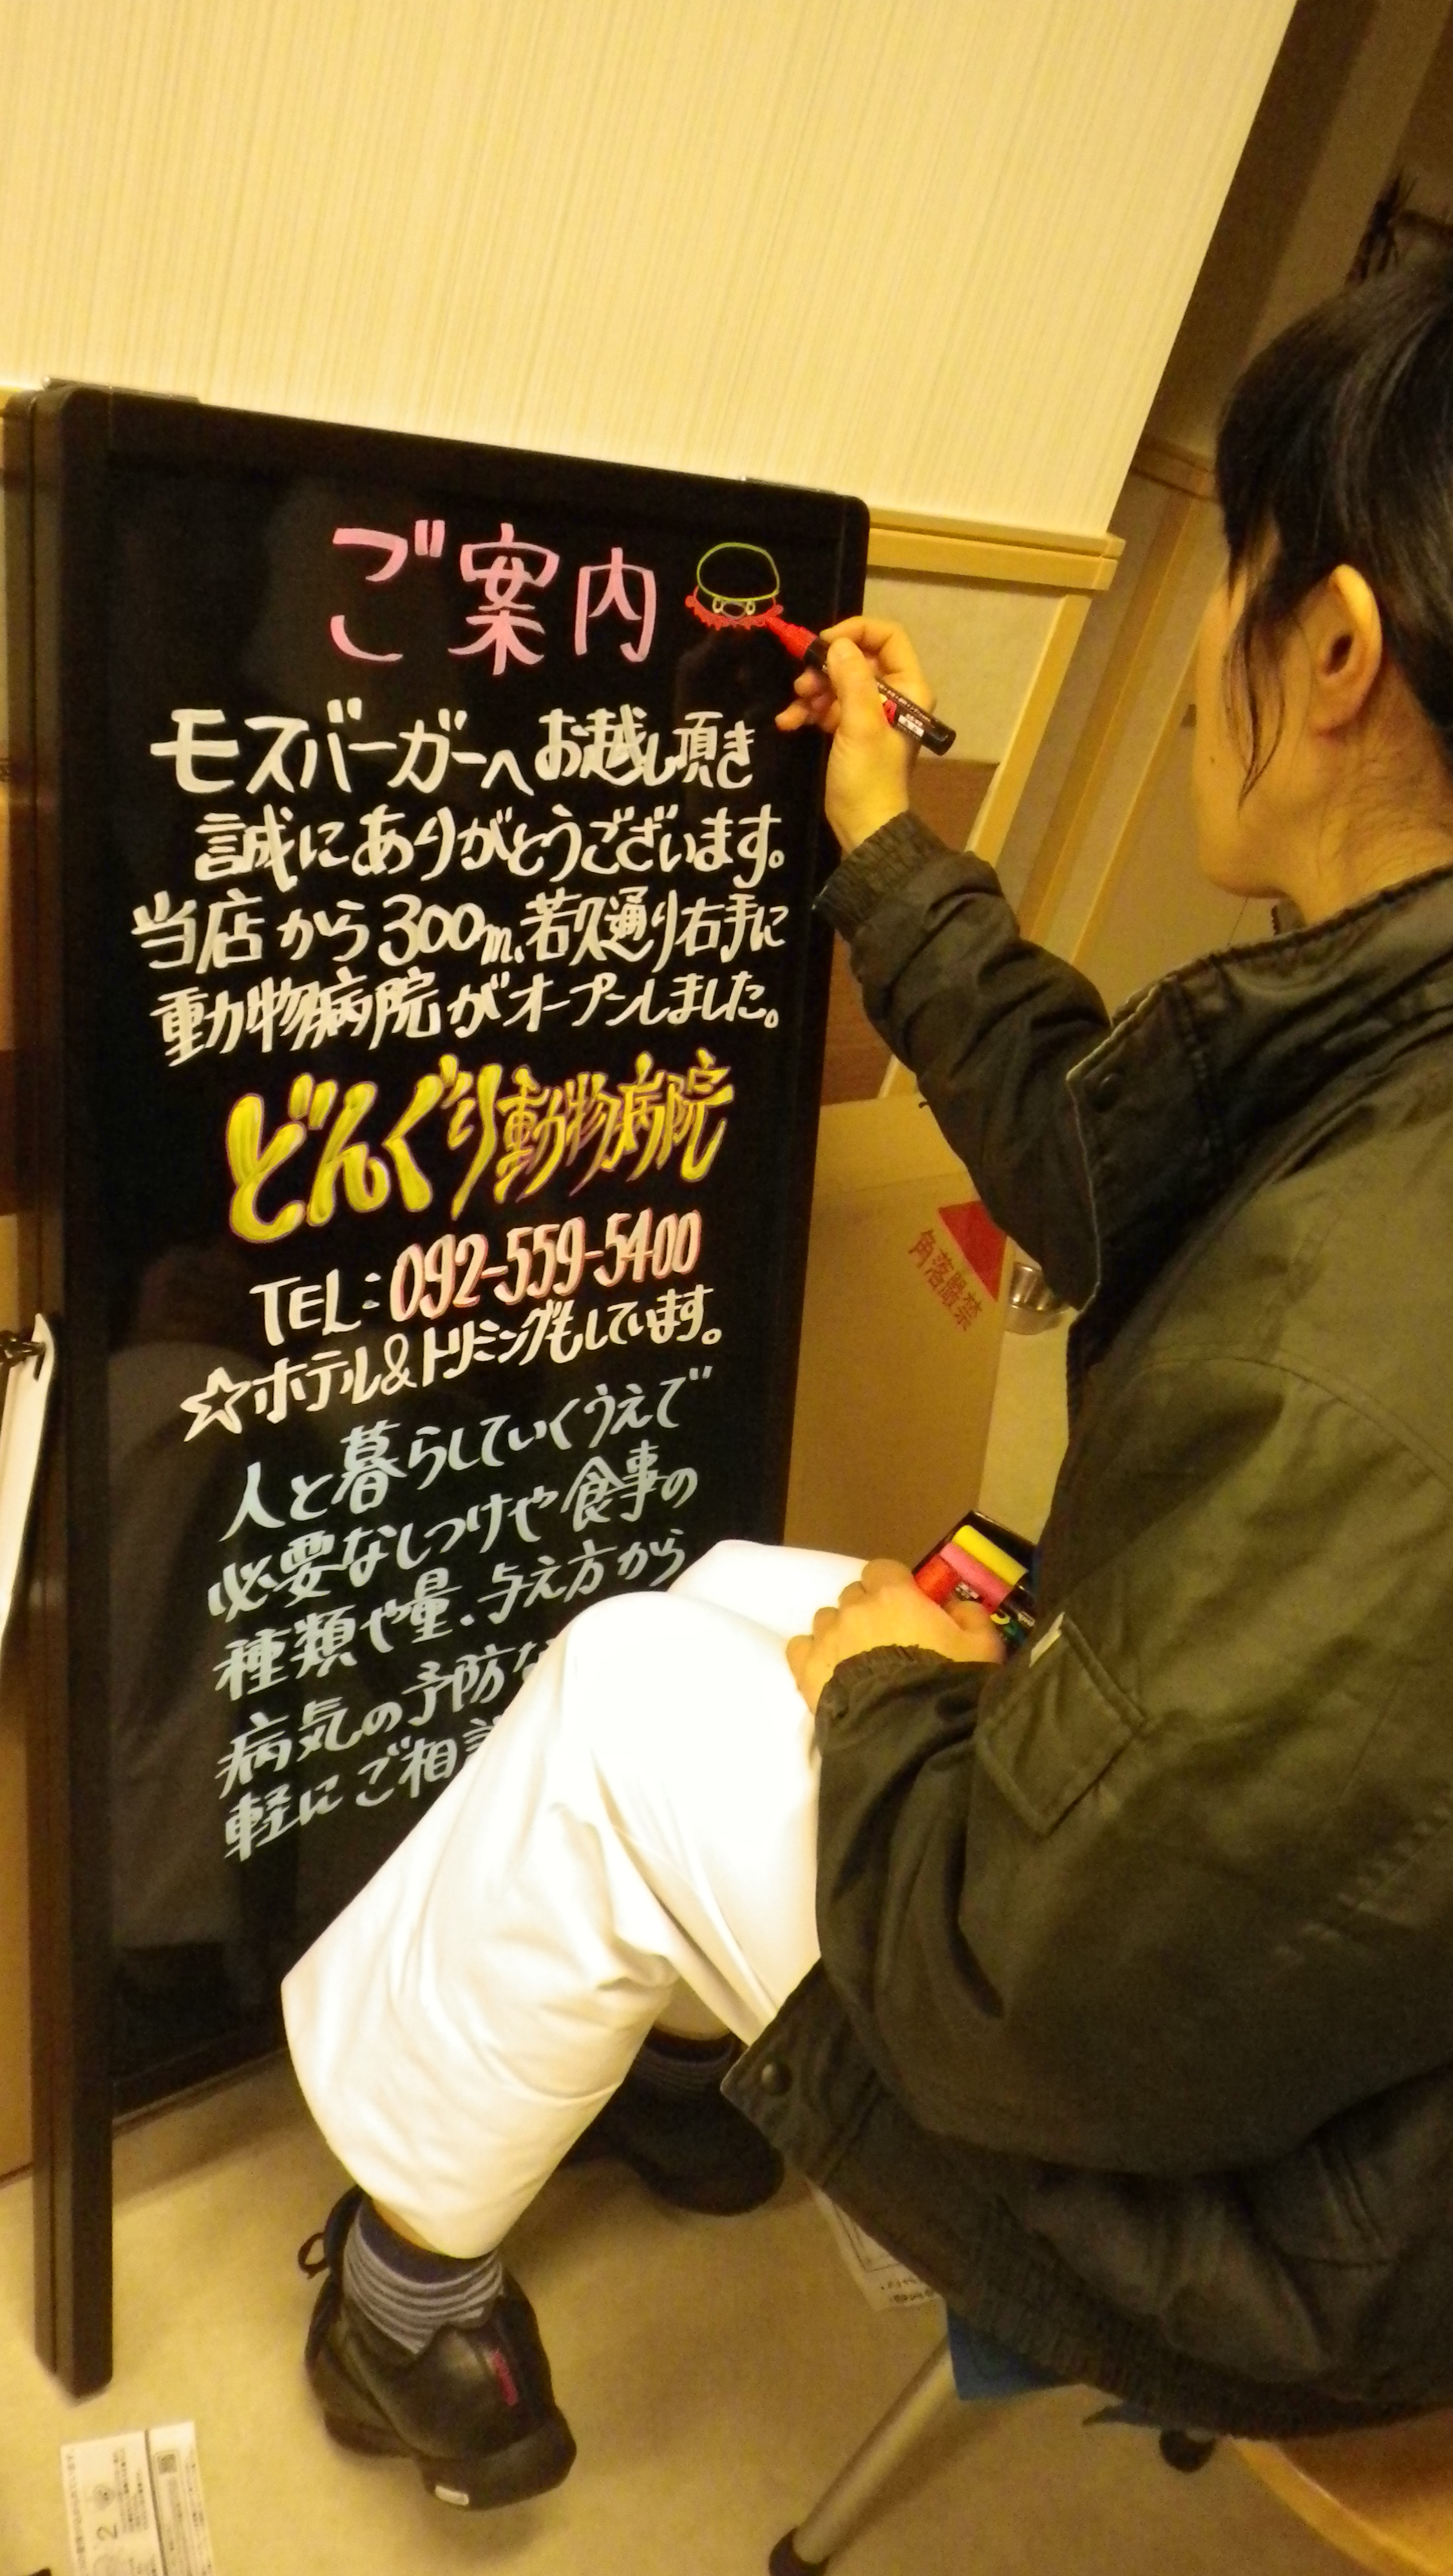 ご案内
モスバーガーへお越し頂き
誠にありがとうございます。
当店から300m、若久通り右手に
動物病院がオープンしました。
どんぐり動物病院
TEL:092-559-5400
☆ホテル&トリミングもしています。
人と暮らしていくうえで
必要なしつけや食事の
種類や量、与え方から
病気の予防な
軽にご相談
角落厳禁
2